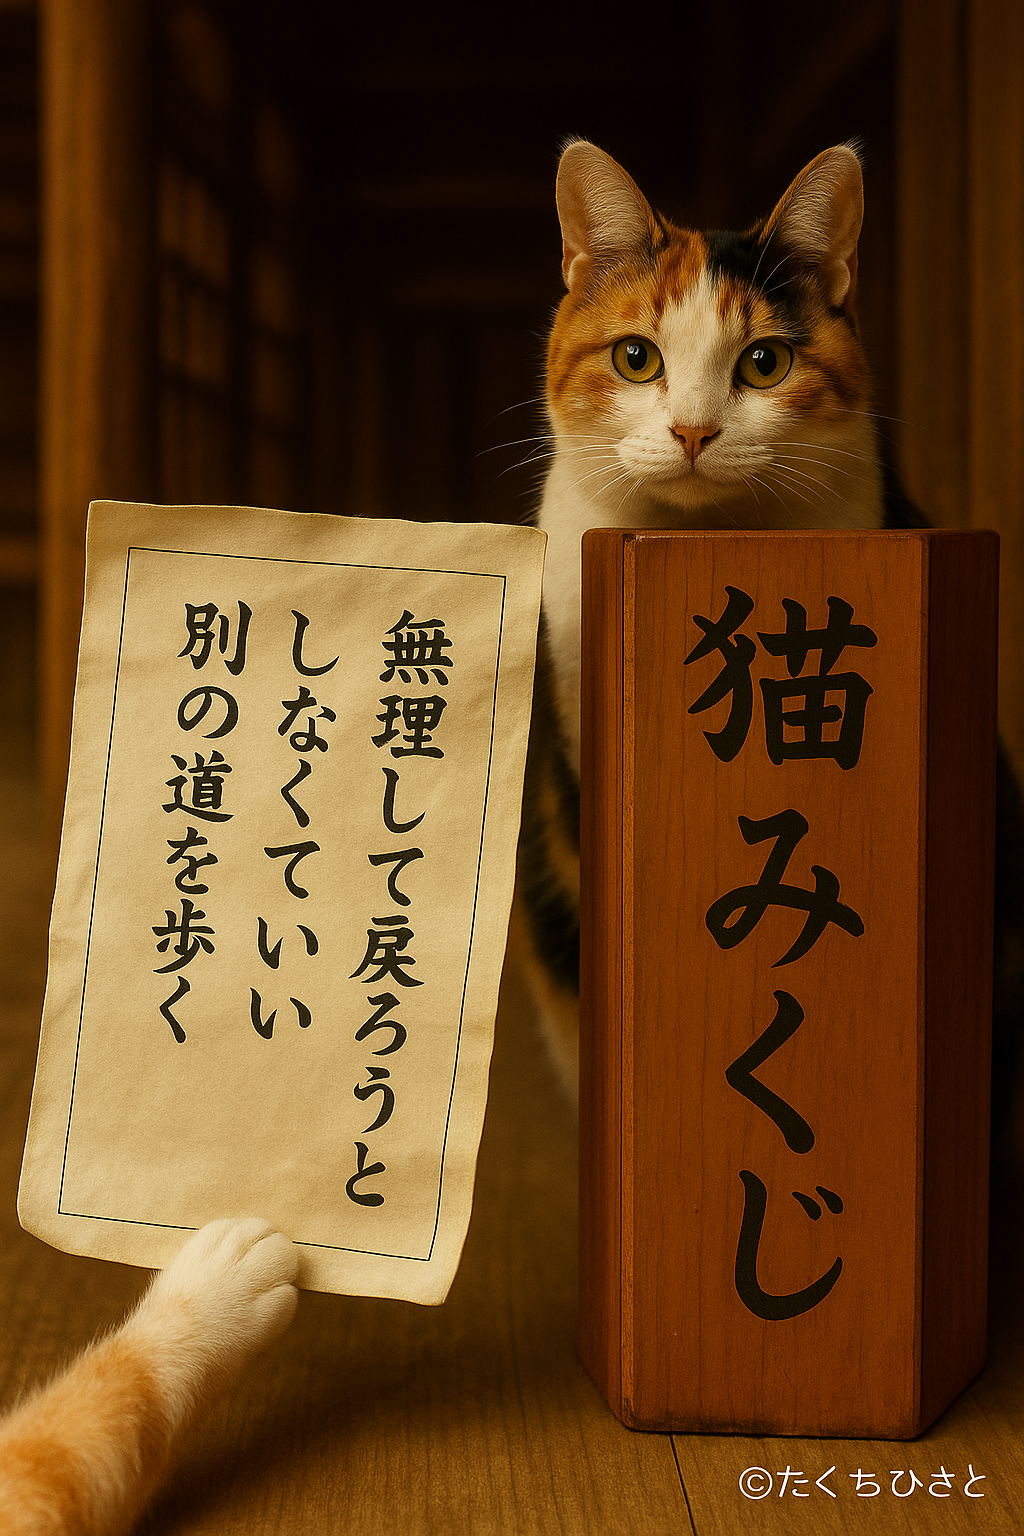 無理して戻ろうと
しなくていい
別の道を歩く
猫みくじ
©たくちひさと